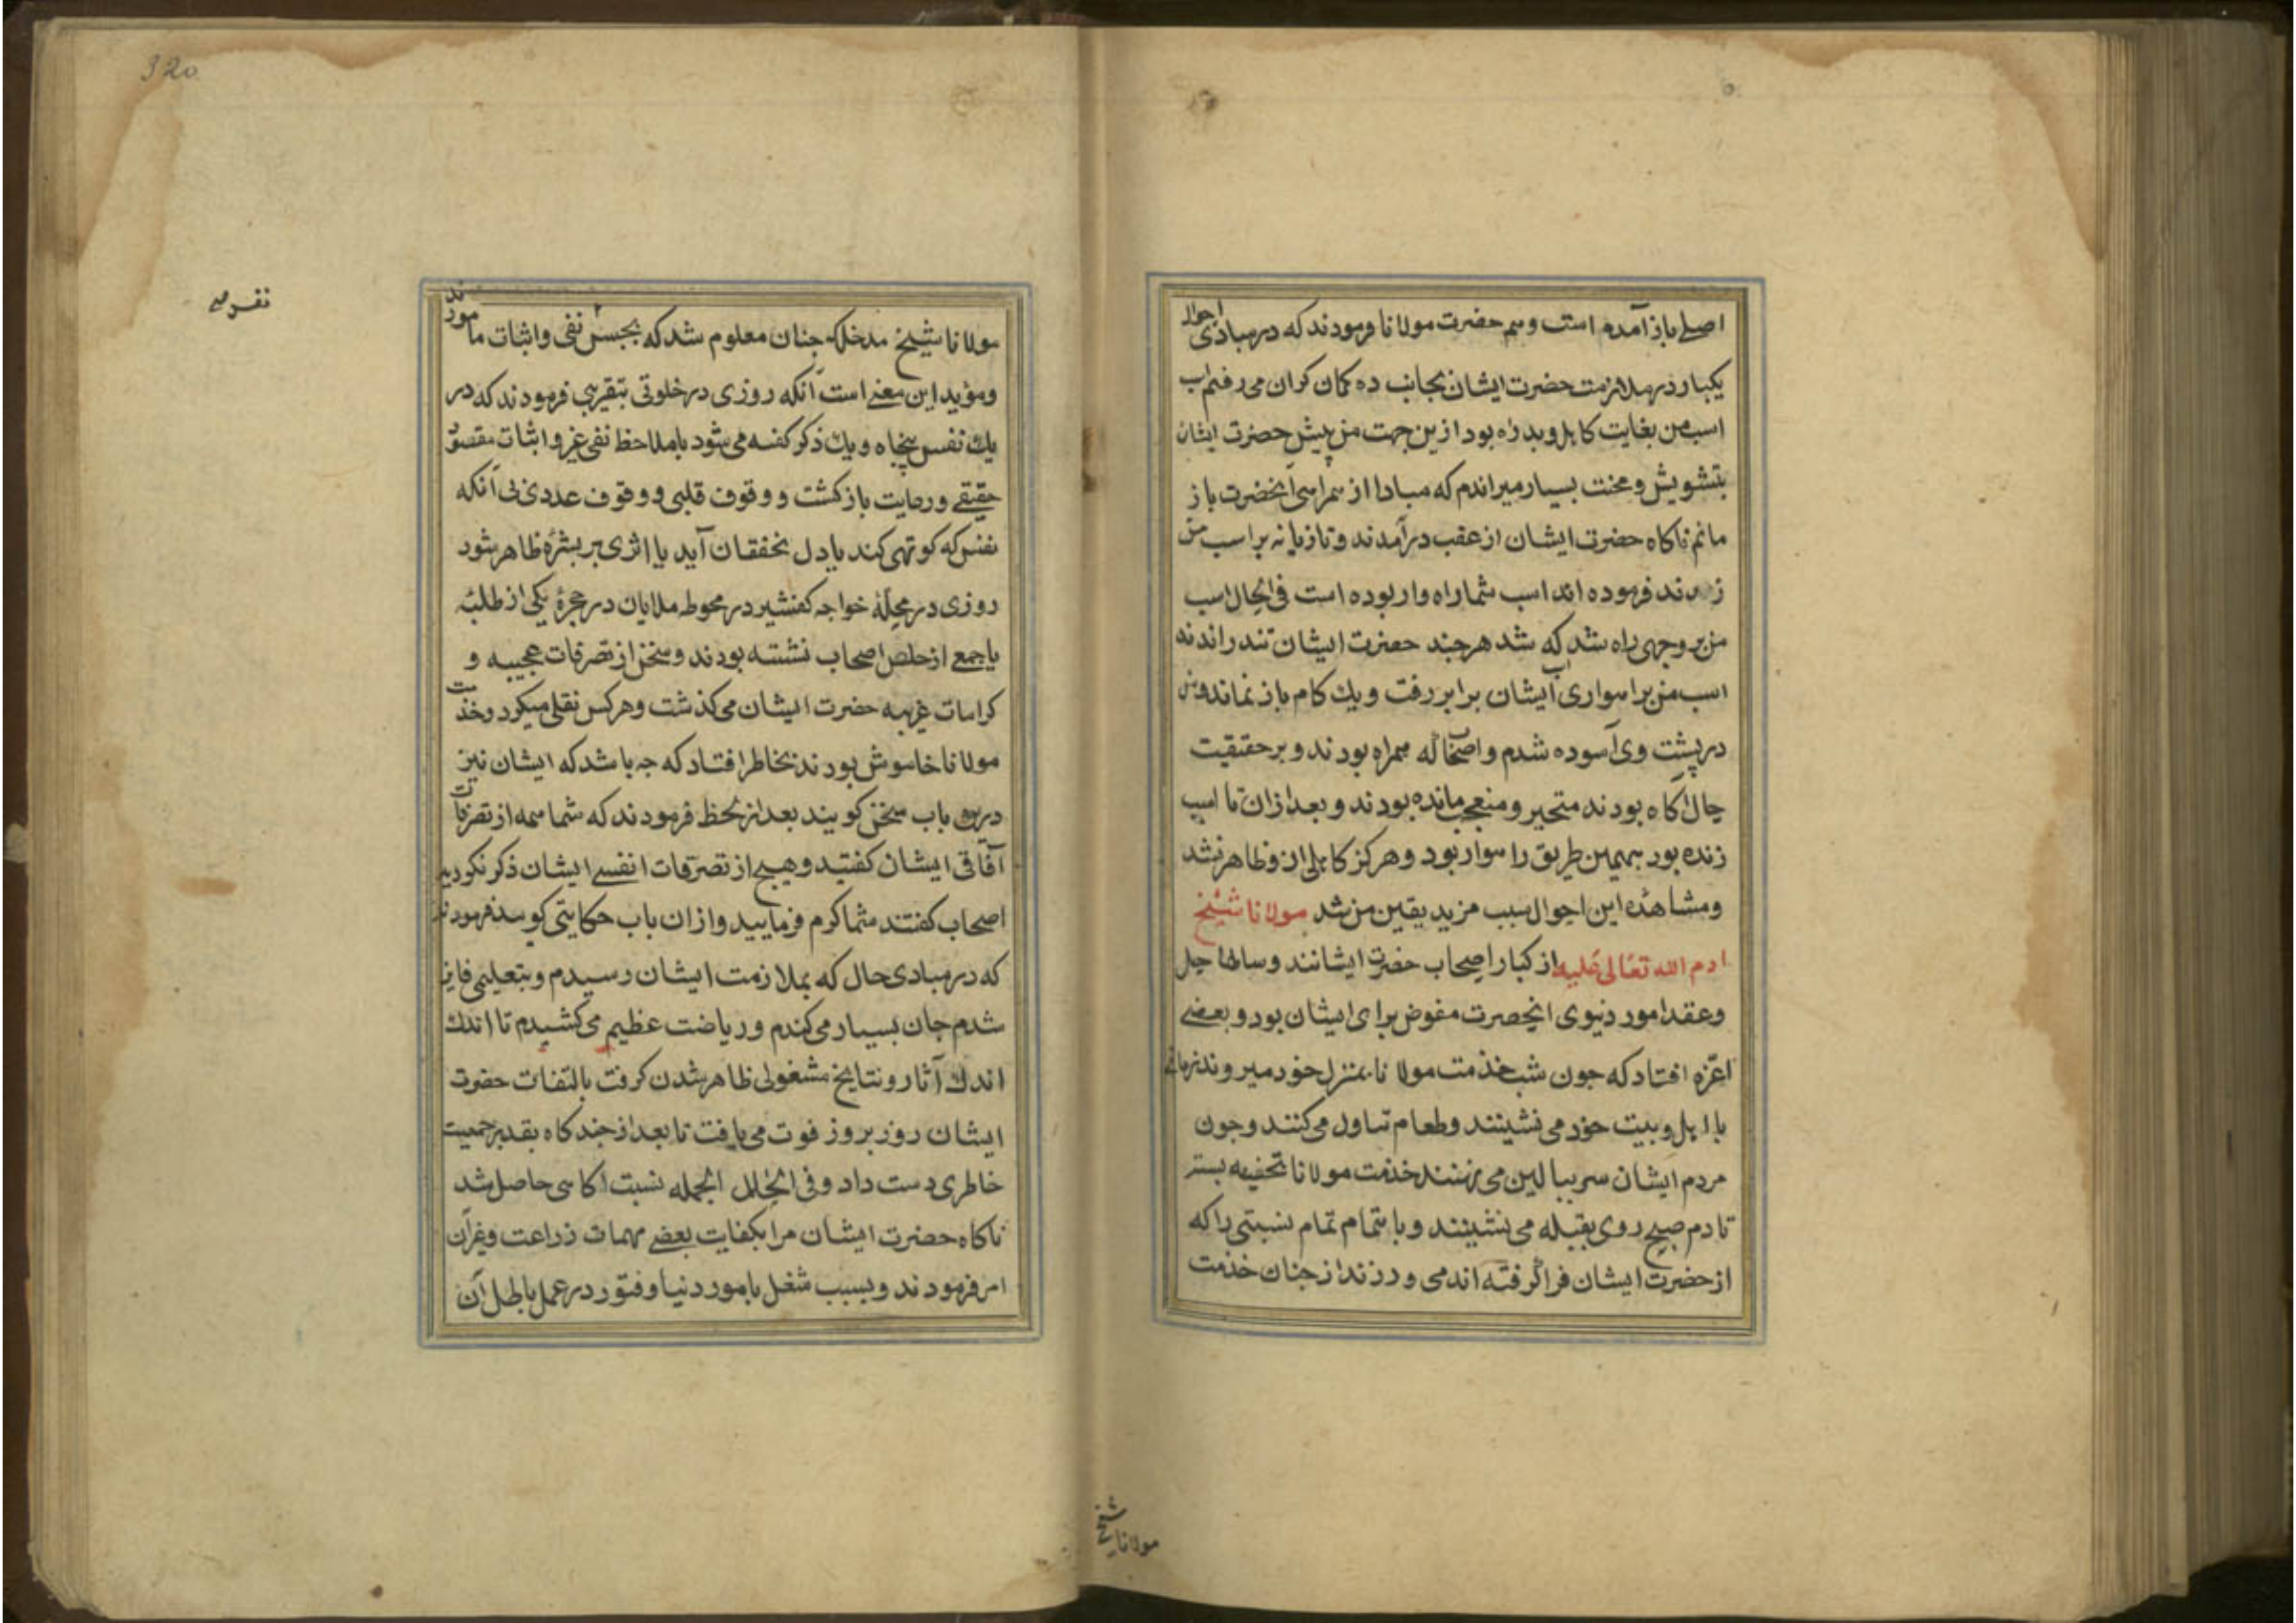 اصلی باز آمده است وهم حضرت مولانا فرمودند که در مبادی احوال
یکبار در ملازمت حضرت ایشان بجانب ده کمان کران می رفتم
اسب من بغایت کاهل وبد راه بود ازین جهت من پیش حضرت ایشان
بتشویش ومحنت بسیار میراندم که مبادا از همراهی آنحضرت باز
مانم ناکاه حضرت ایشان از عقب درآمدند وتازیانه بر اسب من
زدند فرموده اند اسب شما راه وار بوده است فی الحال اسب
من بر وجهی راه شد که شد هر جند حضرت ایشان تند راندند
اسب من برامواری اب ایشان برابر رفت ویك کام باز نماند ومن
در پشت وی آسوده شدم واصحابی که همراه بودند وبر حقیقت
حال آکاه بودند متحیر ومتعجب مانده بودند وبعد ازان تا اسب
زنده بود بهمین طریق راهوار بود وهرکز کاهلی ازو ظاهر نشد
ومشاهدۀ این احوال سبب مزید یقین من شد مولانا شیخ
ادم الله تعالی علیه از کبار اصحاب حضرت ایشانند وسالها حل
وعقد امور دنیوی آنحضرت مفوض برای ایشان بود وبعضی
اعزه افتاد که جون شب خذمت مولانا بمنزل خود میروند زمانی
با اهل وبیت خود می نشینند وطعام تناول می کنند وجون
مردم ایشان سر ببالین می نهند خذمت مولانا تحفیه بستر
تا دم صبح روی بقبله می نشینند وباهتمام تمام نسبتی را که
از حضرت ایشان فرا گرفته اند می ورزند از جنان خذمت
مولانا شیخ
320
نفر صح
مولانا شیخ مدخلکه جنان معلوم شد که بحبس نفی واثبات مامورند
ومؤید این معنی است آنکه روزی در خلوتی بتقریبی فرمودند که در
یك نفس پنجاه ویك ذکر کفته می شود با ملاحظ نفی غیر واثبات مقصود
حقیقی ورعایت بازکشت ووقوف قلبی ووقوف عددی بی آنکه
نفس که کوتهی کند یا دل بخفقان آید یا اثری بر بشرۀ ظاهر شود
روزی در محلۀ خواجه کفشیر در محوطه ملایان در حجرۀ یکی از طلبۀ
با جمعی از خلص اصحاب نشسته بودند وسخن از تصرفات عجیبه و
کرامات غریبه حضرت ایشان می کذشت وهر کس نقلی میکرد وخذمت
مولانا خاموش بودند بخاطر افتاد که جه باشد که ایشان نیز
درین باب سخن کویند بعد از لحظ فرمودند که شما همه از تصرفات
آفاقی ایشان کفتید وهیج از تصرفات انفسی ایشان ذکر نکردید
اصحاب کفتند شما کرم فرمایید وازان باب حکایتی کویید فرمودند
که در مبادی حال که بملازمت ایشان رسیدم وبتعلیمی فایز
شدم جان بسیار می کندم وریاضت عظیم می کشیدم تا اندك
اندك آثار ونتایج مشغولی ظاهر شدن کرفت بالتفات حضرت
ایشان روز بروز قوت می یافت تا بعد از جند کاه بقدر جمعیت
خاطری دست داد وفی الخلل الجمله نسبت آکاهی حاصل شد
ناکاه حضرت ایشان مرا بکفایت بعضی مهمات زراعت وغیر آن
امر فرمودند وبسبب شغل بامور دنیا وفتور در عمل باطل آن